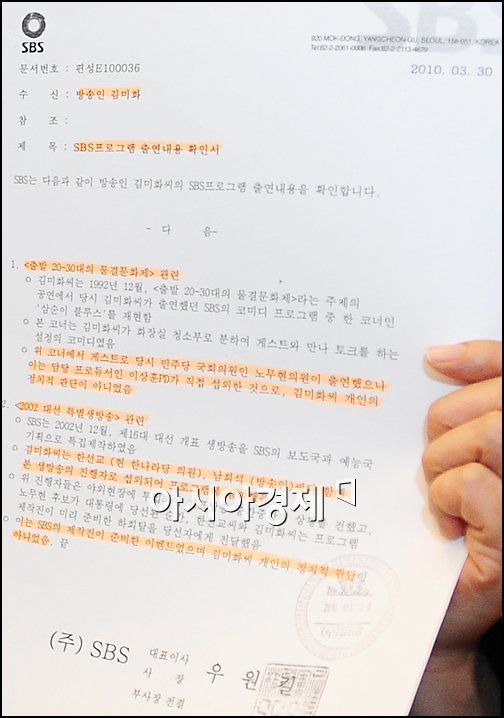 SBS
SBS
920 MOK-DONG, YANGCHEON-GU, SEOUL, 158-051, KOREA
Tel:82-2-2061-0006 Fax:82-2-2113-4679
문서번호 : 편성E100036
2010. 03. 30
수 신 : 방송인 김미화
참 조 :
제 목 : SBS프로그램 출연내용 확인서
SBS는 다음과 같이 방송인 김미화씨의 SBS프로그램 출연내용을 확인합니다.
- 다 음-
1. <출발 20-30대의 물결문화제> 관련
o 김미화씨는 1992년 12월, <출발 20-30대의 물결문화제>라는 주제의
공연에서 당시 김미화씨가 출연했던 SBS의 코미디 프로그램 중 한 코너인
'삼순이 블루스'를 재현함
o 본 코너는 김미화씨가 화장실 청소부로 분하여 게스트와 만나 토크를 하는
설정의 코미디였음
o 위 코너에서 게스트로 당시 민주당 국회의원인 노무현의원이 출연했으나
이는 담당 프로듀서인 이상훈PD가 직접 섭외한 것으로, 김미화씨 개인의
정치적 판단이 아니었음
2. <2002 대선 특별생방송> 관련
o SBS는 2002년 12월, 제16대 대선 개표 생방송을 SBS의 보도국과 예능국
기획으로 특집제작하였음
o 김미화씨는 한선교(현 한나라당 의원), 남희석(방송인)씨와 함께
본 생방송의 진행자로 섭외되어 프로그램
o 위 진행자들은 야외현장에 상황을 전했고,
노무현 후보가 대통령에 당선 한선교씨와 김미화씨는 프로그램
제작진이 미리 준비한 하회탈을 당선자에게 전달했음
o 이는 SBS의 제작진이 준비한 이벤트였으며 김미화씨 개인의 정치적 판단이
아니었음. 끝
아시아경제
(주) SBS 대표이사
사 장 우 원 길
부사장 전결